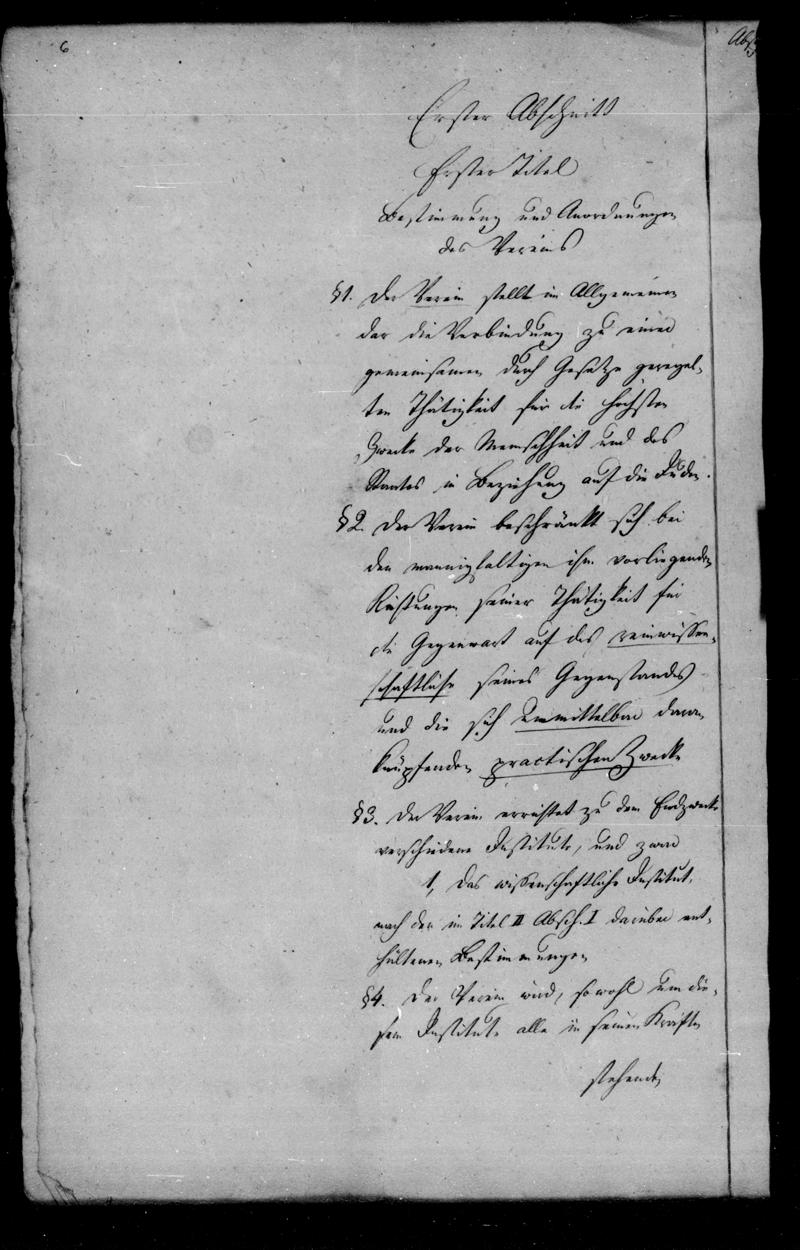 6
Erster Abschnitt
Erster Titel
Bestimmung und Anordnungen
des Vereins
§1. Der Verein stellt im Allgemeinen
dar die Verbindung zu einer
gemeinsamen durch Gesetze geregel-
ten Thätigkeit für die höchsten
Zwecke der Menschheit und des
Staates in Beziehung auf die Juden.
§2. Der Verein beschränkt sich bei
den mannigfaltigen ihm vorliegenden
Richtungen seiner Thätigkeit für
die Gegenwart auf das reinwissen-
schaftliche seines Gegenstandes
und die sich unmittelbar daran
knüpfenden practischen Zwecke
§3. Der Verein errichtet zu dem Endzwecke
verschiedene Institute, und zwar
1, das wissenschaftliche Institut,
nach den im Titel II Absch. I darüber ent-
haltenen Bestimmungen
§4. Der Verein wird, sowohl um die-
sem Institute alle in seinen Kräften
stehende